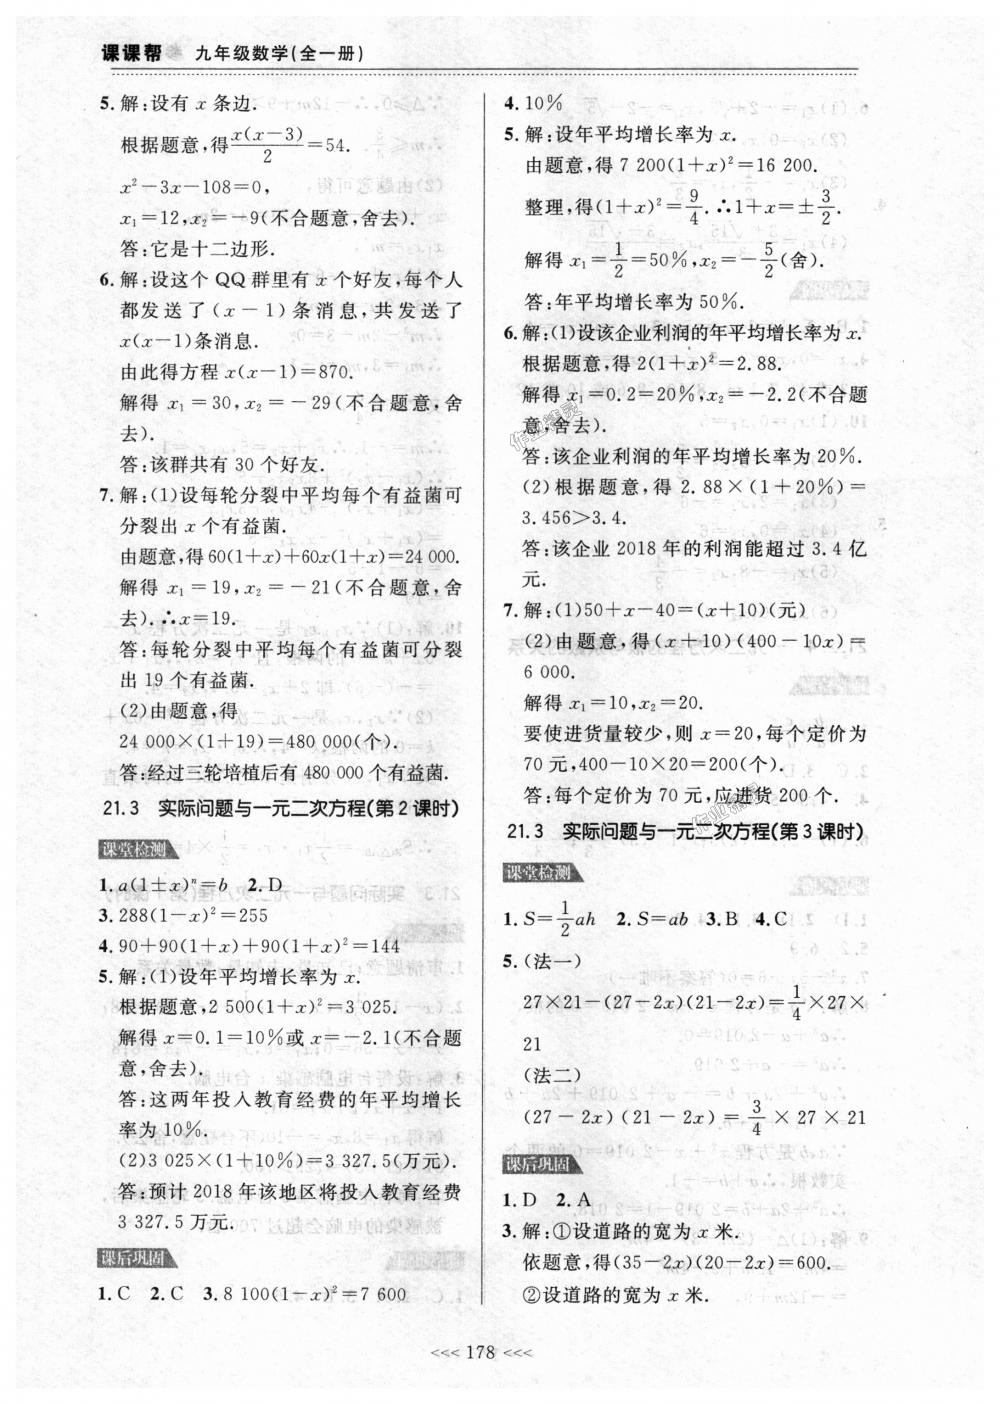 课课帮 九年级数学(全一册)
5. 解:设有 x 条边.
根据题意,得x(x-3)/2=54.
x²-3x-108=0,
x₁=12,x₂=-9(不合题意,舍去).
答:它是十二边形.
6. 解:设这个 QQ 群里有 x 个好友,每个人
都发送了 (x-1) 条消息,共发送了
x(x-1)条消息.
由此得方程 x(x-1)=870.
解得 x₁=30,x₂=-29(不合题意,舍
去).
答:该群共有 30 个好友.
7. 解:(1)设每轮分裂中平均每个有益菌可
分裂出 x 个有益菌.
由题意,得 60(1+x)+60x(1+x)=24 000.
解得 x₁=19,x₂=-21(不合题意,舍
去).∴x=19.
答:每轮分裂中平均每个有益菌可分裂
出 19 个有益菌.
(2)由题意,得
24 000×(1+19)=480 000(个).
答:经过三轮培植后有 480 000 个有益菌.
21.3 实际问题与一元二次方程(第 2 课时)
课堂检测
1. a(1±x)ⁿ=b 2. D
3. 288(1-x)²=255
4. 90+90(1+x)+90(1+x)²=144
5. 解:(1)设年平均增长率为 x.
根据题意,2 500(1+x)²=3 025.
解得 x=0.1=10%或 x=-2.1(不合题
意,舍去).
答:这两年投入教育经费的年平均增长
率为 10%.
(2)3 025×(1+10%)=3 327.5(万元).
答:预计 2018 年该地区将投入教育经费
3 327.5 万元.
课后巩固
1. C 2. C 3. 8 100(1-x)²=7 600
4. 10%
5. 解:设年平均增长率为 x.
由题意,得 7 200(1+x)²=16 200.
整理,得(1+x)²=9/4.∴1+x=±3/2.
解得 x₁=1/2=50%,x₂=-5/2(舍).
答:年平均增长率为 50%.
6. 解:(1)设该企业利润的年平均增长率为 x.
根据题意,得 2(1+x)²=2.88.
解得 x₁=0.2=20%,x₂=-2.2(不合题
意,舍去).
答:该企业利润的年平均增长率为 20%.
(2)根据题意,得 2.88×(1+20%)=
3.456>3.4.
答:该企业 2018 年的利润能超过 3.4 亿
元.
7. 解:(1)50+x-40=(x+10)(元)
(2)由题意,得(x+10)(400-10x)=
6 000.
解得 x₁=10,x₂=20.
要使进货量较少,则 x=20,每个定价为
70 元,400-10×20=200(个).
答:每个定价为 70 元,应进货 200 个.
21.3 实际问题与一元二次方程(第 3 课时)
课堂检测
1. S=1/2ah 2. S=ab 3. B 4. C
5. (法一)
27×21-(27-2x)(21-2x)=1/4×27×
21
(法二)
(27-2x)(21-2x)=3/4×27×21
课后巩固
1. D 2. A
3. 解:①设道路的宽为 x 米.
依题意,得(35-2x)(20-2x)=600.
②设道路的宽为 x 米.
<<< 178 <<<
作业精灵
作业精灵